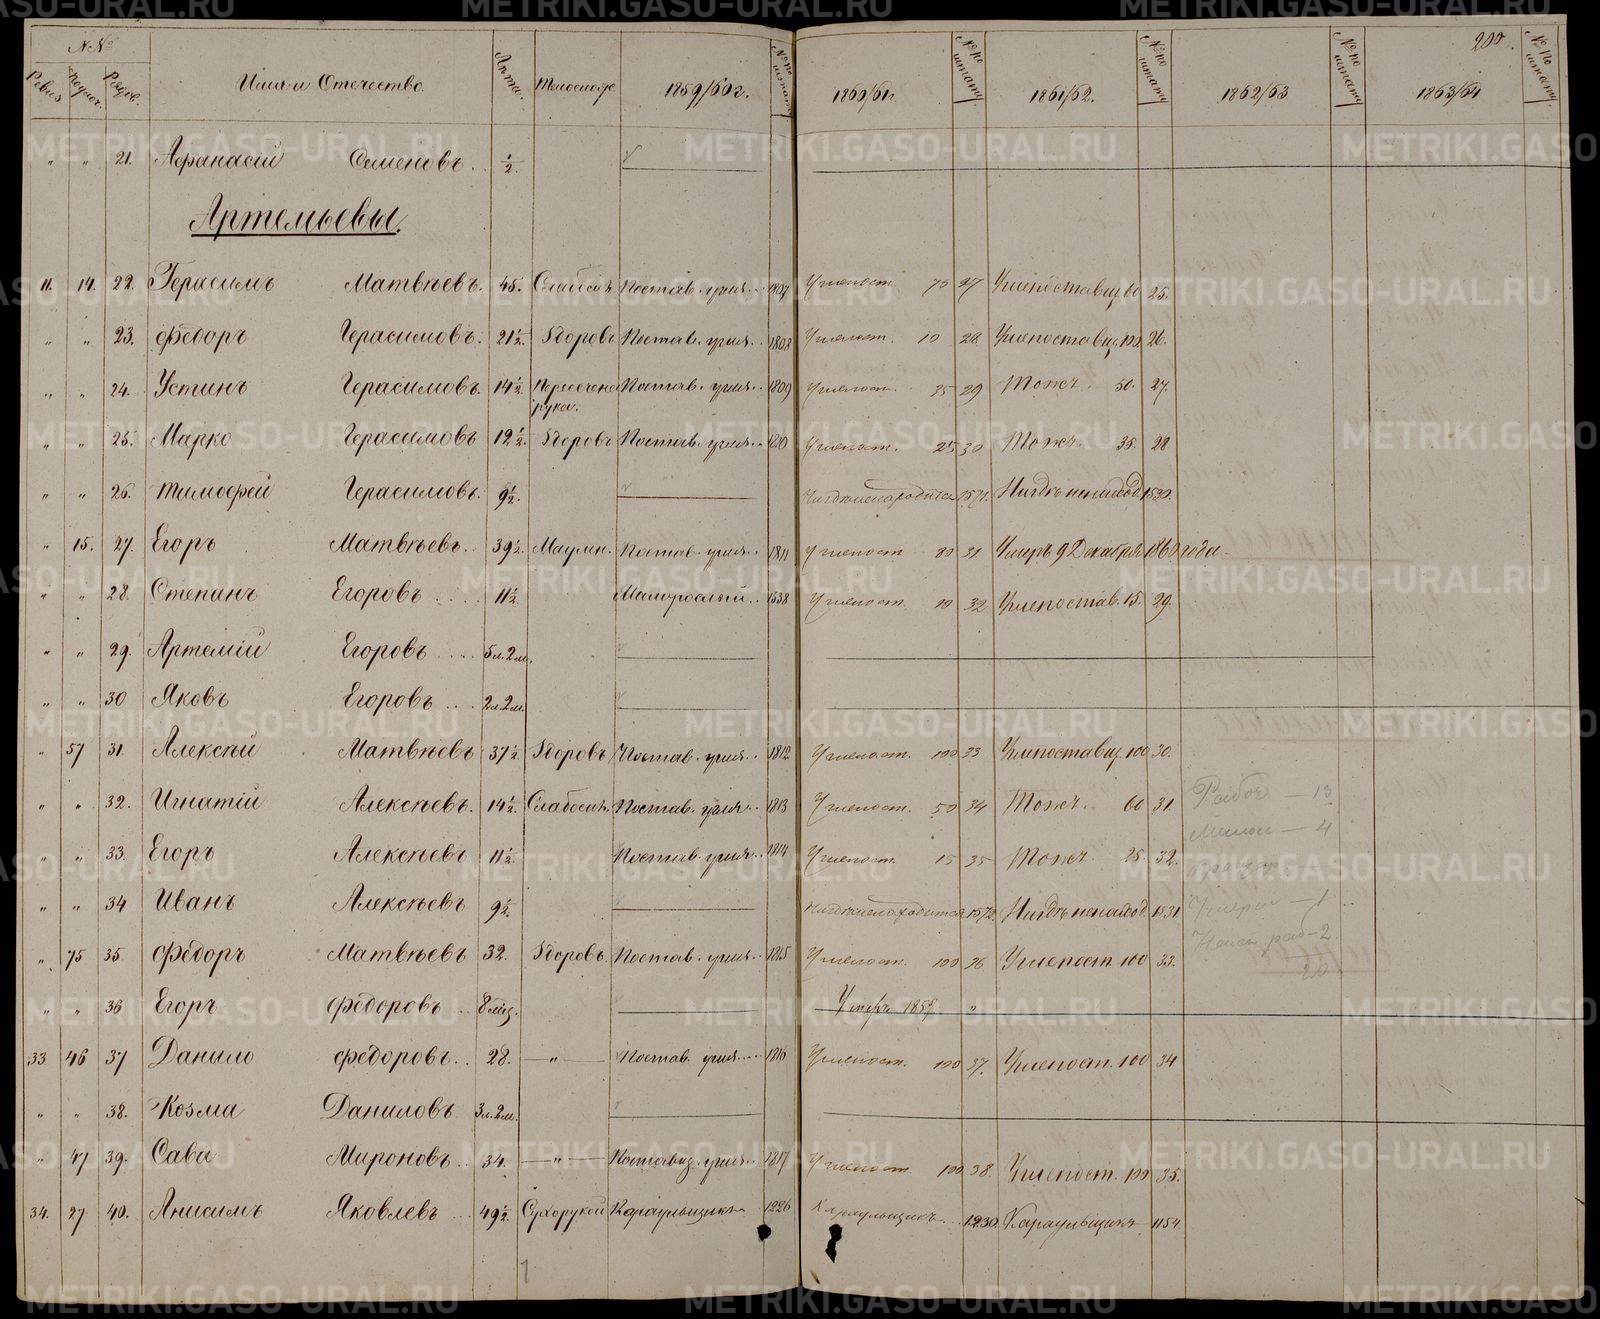 200.
№№
Ревиз. Подвор. Рядов. Имя и Отечество. Лѣта. Телослож. 1859/60 г. №по штату 1860/61 г. №по штату 1861/62. №по штату 1862/63 №по штату 1863/64 №по штату
" " 21. Афанасій Семеновъ . . ½
Артемьевы.
11. 14. 22. Герасимъ Матвѣевъ. 45. Слабосил. Постав. угля . . 1807 Углепост. 75 27 Углепоставщ. 60 25.
" " 23. Федоръ Герасимовъ. 21½ Здоровъ Постав. угля . . 1808 Углепост. 10 28 Углепоставщ. 100 26.
" " 24. Устинъ Герасимовъ. 14½ Пересечена рука. Постав. угля . . 1809 Углепост. 35 29 Тожъ. 50. 27.
" " 25. Марко Герасимовъ 12½ Здоровъ Постав. угля . . 1810 Углепост. 25 30 Тожъ. 35. 28
" " 26. Тимофей Герасимовъ. 9½ Нигдѣ не находится 1571. Нигдѣ не наход. 1530.
" 15. 27. Егоръ Матвѣевъ . . 39½ Маумн. Постав. угля . . 1811 Углепост. 80 31 Умеръ 9 Декабря 1860 года
" " 28. Степанъ Егоровъ . . . . 11½ Малорослый . . 1538 Углепост. 10 32 Углепостав. 15. 29.
" " 29. Артемій Егоровъ . . . . 5 л. 2 м.
" " 30 Яковъ Егоровъ . . . 2 л. 2 м.
" 57 31. Алексѣй Матвѣевъ 37½ Здоровъ Постав. угля . . 1812 Углепост. 100 33 Углепоставщ. 100 30.
" " 32. Игнатій Алексѣевъ. 14½ Слабосил. Постав. угля . . 1813 Углепост. 50 34 Тожъ. 60 31 Рабоч — 13
" " 33. Егоръ Алексѣевъ 11½ Постав. угля . . 1814 Углепост. 15 35 Тожъ. 25. 32. — 4
" " 34 Иванъ Алексѣевъ 9½ Нигдѣ не находится 1572 Нигдѣ не наход. 1531 — 1
" 75 35. Федоръ Матвѣевъ 32. Здоровъ. Постав. угля . . 1815 Углепост. 100 36 Углепост. 100 33. — 2
20
" " 36 Егоръ Федоровъ . . 8 мѣс. Умеръ 1859 "
33 46 37 Данило Федоровъ . . 28. — " — Постав. угля . . . 1816 Углепост. 100 37. Углепост. 100 34
" " 38. Козма Даниловъ 3 л. 2 м.
" 47 39. Сава Мироновъ . . 34. — " — Поставщ. угля . . 1817 Углепост. 100 38. Углепост. 100 35.
34. 27 40. Анисимъ Яковлевъ . . 49½ Сухорукой Караульщикъ 1226 Караульщикъ . . . 1230. Караульщикъ 1154.